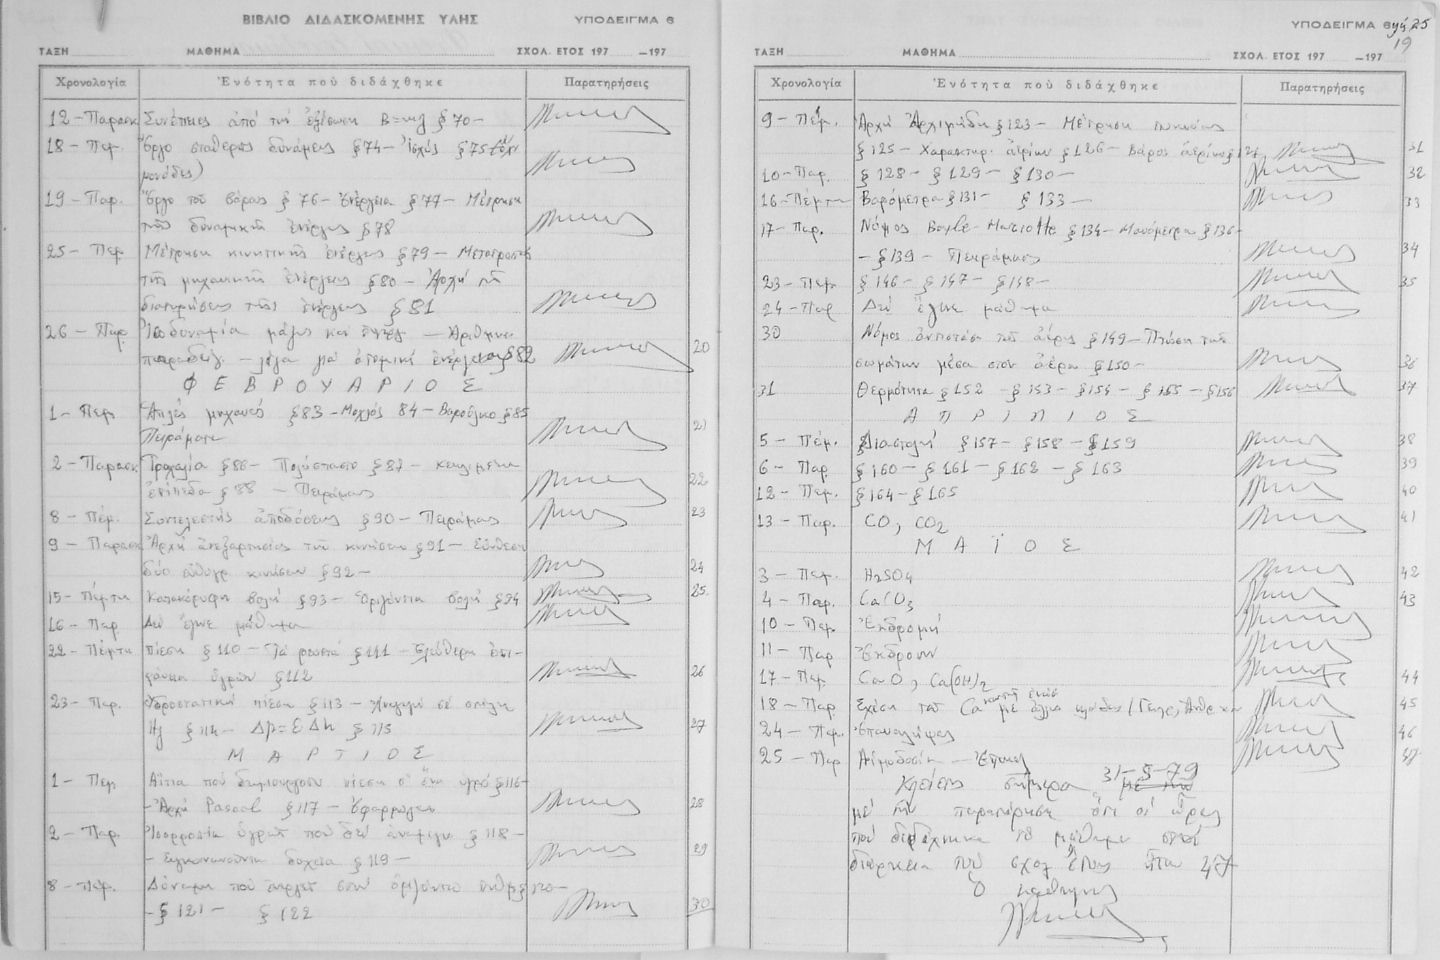 ΒΙΒΛΙΟ ΔΙΔΑΣΚΟΜΕΝΗΣ ΥΛΗΣ ΥΠΟΔΕΙΓΜΑ 6
ΤΑΞΗ ΜΑΘΗΜΑ ΣΧΟΛ. ΕΤΟΣ 197 —197
Χρονολογία Ἑνότητα ποὺ διδάχθηκε Παρατηρήσεις
12 - Παρασκ Συνέπειες ἀπό τήν ἐξίσωση Β=mg § 70 -
18 - Πεμ. Ἔργο σταθερῆς δυνάμεως § 74 - Ἰσχύς § 75
μονάδες)
19 - Παρ. Ἔργο τοῦ βάρους § 76 - Ἐνέργεια § 77 - Μέτρηση
τῆς δυναμικῆς ἐνέργειας § 78
25 - Πεμ Μέτρηση κινητικῆς ἐνέργειας § 79 - Μετατροπές
τῆς μηχανικῆς ἐνέργειας § 80 - Ἀρχή τῆς
διατηρήσεως τῆς ἐνέργειας § 81
26 - Παρ Ἰσοδυναμία μάζας καί ἐνέργ - Ἀριθμητικ
παραδείγ. - λίγα γιά ἀτομική ἐνέργεια § 82 20
ΦΕΒΡΟΥΑΡΙΟΣ
1 - Πεμ Ἁπλές μηχανές § 83 - Μοχλός 84 - Βαροῦλκο § 85
Πειράματα 21
2 - Παρασκ Τροχαλία § 86 - Πολύσπαστο § 87 - κεκλιμένα
ἐπίπεδα § 88 - Πειράματα 22
8 - Πέμ. Συντελεστής ἀποδόσεως § 90 - Πειράματα 23
9 - Παρασκ Ἀρχή ἀνεξαρτησίας τῶν κινήσεων § 91 - Σύνθεση
δύο εὐθυγρ κινήσεων § 92 - 24
15 - Πέμπτη Κατακόρυφη βολή § 93 - Ὁριζόντια βολή § 94 25
16 - Παρ Δέν ἔγινε μάθημα
22 - Πέμπτη πίεση § 110 - Τά ρευστά § 111 - Ἐλεύθερη ἐπι-
φάνεια ὑγρῶν § 112 26
23 - Παρ. Ὑδροστατική πίεση § 113 - σέ στήλη
Hg § 114 - Δp = ε Δh § 115 27
ΜΑΡΤΙΟΣ
1 - Πεμ Αἴτια πού δημιουργοῦν πίεση σ' ἕνα ὑγρό § 116
- Ἀρχή Pascal § 117 - Ἐφαρμογές 28
2 - Παρ. Ἰσορροπία ὑγρῶν πού δέν ἀναμιγν § 118 -
- συγκοινωνοῦντα δοχεῖα § 119 - 29
8 - Πέμ. Δύναμη πού ἐνεργεῖ στόν ὁριζόντιο πυθμ § 120 -
- § 121 - § 122 30
ΥΠΟΔΕΙΓΜΑ 6 25
19
ΤΑΞΗ ΜΑΘΗΜΑ ΣΧΟΛ. ΕΤΟΣ 197 —197
Χρονολογία Ἑνότητα ποὺ διδάχθηκε Παρατηρήσεις
9 - Πέμ. Ἀρχή Ἀρχιμήδη § 123 - Μέτρηση πυκνότητας
§ 125 - Χαρακτηρ. ἀερίων § 126 - Βάρος ἀερίων § 127 31
10 - Παρ. § 128 - § 129 - § 130 - 32
16 - Πέμπτη Βαρόμετρα § 131 - § 133 - 33
17 - Παρ. Νόμος Boyle - Mariotte § 134 - Μανόμετρα § 136 -
- § 139 - Πειράματα 34
23 - Πεμ § 146 - § 147 - § 148 - 35
24 - Παρ Δέν ἔγινε μάθημα
30 Νόμος ἀντιστάσ τοῦ ἀέρος § 149 - Πτώση τῶν
σωμάτων μέσα στόν ἀέρα § 150 - 36
31 Θερμότητα § 152 - § 153 - § 154 - § 155 - § 156 37
ΑΠΡΙΛΙΟΣ
5 - Πέμ. Διαστολή § 157 - § 158 - § 159 38
6 - Παρ § 160 - § 161 - § 162 - § 163 39
12 - Πεμ. § 164 - § 165 40
13 - Παρ. CO, CO2 41
ΜΑΪΟΣ
3 - Πεμ. H2SO4 42
4 - Παρ. CaCO3 43
10 - Πεμ Ἐκδρομή
11 - Παρ Ἐκδρομή
17 - Πεμ CaO, Ca(OH)2 44
18 - Παρ Σχέση τοῦ Ca μέ ἄλλα 45
24 - Πεμ Ἐπαναλήψεις 46
25 - Παρ Αἱμοδοσία - Ἐπαναλ 47
Κλείεται σήμερα 31-5-79
μέ τήν παρατήρηση ὅτι οἱ ὧρες
πού διδάχτηκε τό μάθημα στή
διάρκεια τοῦ σχολ ἔτους ἦταν 47
Ὁ καθηγητής